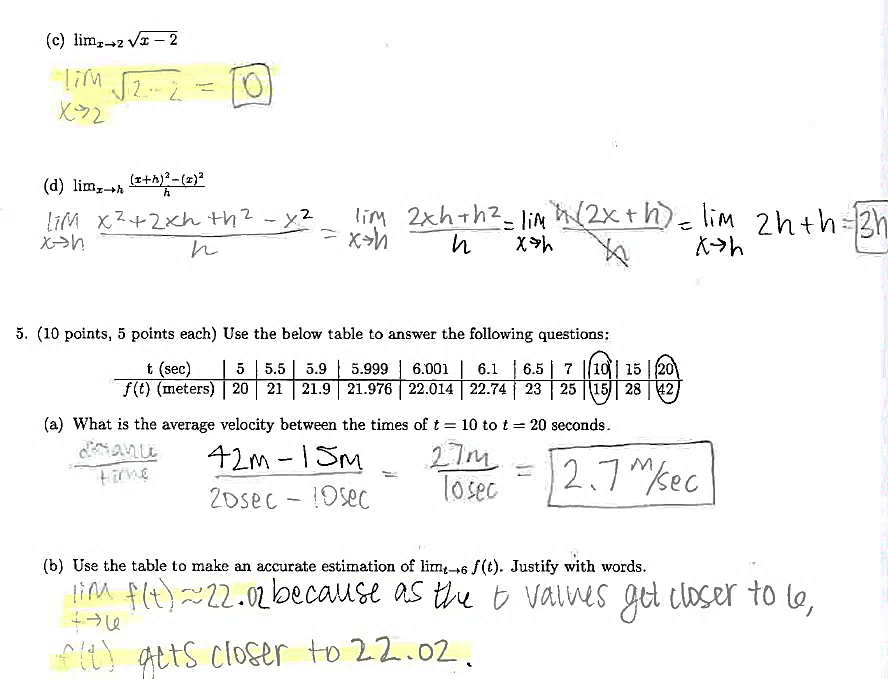 (c) lim_{x→2} √(x − 2)
lim x→2 √(2-2) = 0
(d) lim_{x→h} ((x+h)²−(x)²)/h
lim x→h (x²+2xh+h²-x²)/h = lim x→h (2xh+h²)/h = lim x→h h(2x+h)/h = lim x→h 2h+h = 3h
5. (10 points, 5 points each) Use the below table to answer the following questions:
t (sec) | 5 | 5.5 | 5.9 | 5.999 | 6.001 | 6.1 | 6.5 | 7 | 10 | 15 | 20
f(t) (meters) | 20 | 21 | 21.9 | 21.976 | 22.014 | 22.74 | 23 | 25 | 15 | 28 | 42
(a) What is the average velocity between the times of t = 10 to t = 20 seconds.
distance/time (42m-15m)/(20sec-10sec) = 27m/10sec = 2.7 m/sec
(b) Use the table to make an accurate estimation of lim_{t→6} f(t). Justify with words.
lim t→6 f(t) ≈ 22.02 because as the t values get closer to 6,
f(t) gets closer to 22.02.